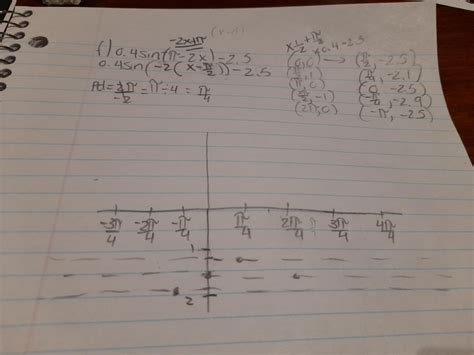 -2x+π
f) 0.4sin(π-2x)-2.5
0.4sin(-2(x-π/2))-2.5
Pd=2π/-2=π÷4=π/4
(0,0) → (π/2, -2.5)
(π/2, 1) (π/4, -2.1)
(π, 0) (0, -2.5)
(3π/2, -1) (-π/4, -2.9)
(2π, 0) (-π, -2.5)
-3π/4 -2π/4 -π/4 π/4 2π/4 3π/4 4π/4
1
2